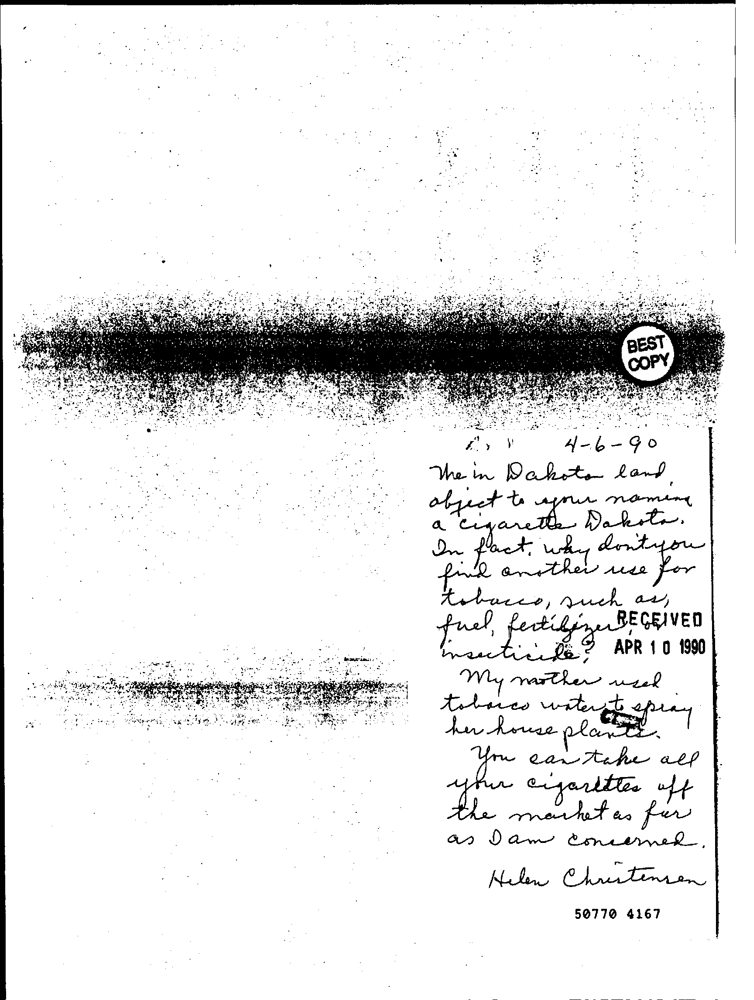 BEST
COPY
4-6-90
We in Dakota land,
object to your naming
a cigarette Dakota.
In fact, why don't you
find another use for
tobacco, such as,
fuel, fertilizer, or
RECEIVED
insecticide?
APR 10 1990
My mother used
tobacco water to spray
her house plants.
You can take all
your cigarettes off
the market as far
as I am concerned.
Helen Christensen
50770 4167